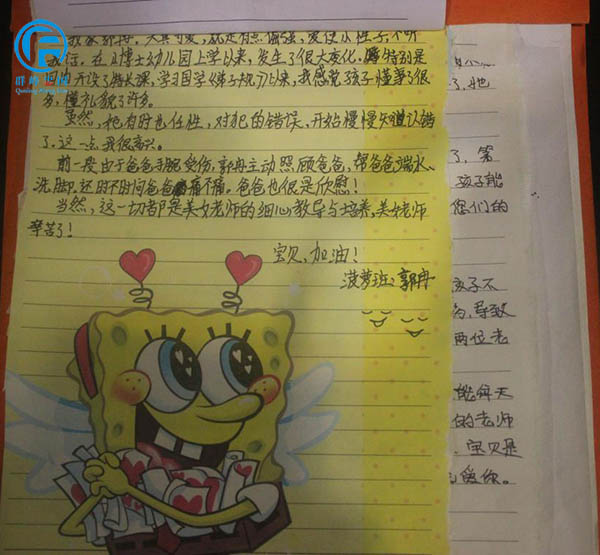 天真可爱，就是有点倔强，爱使小性子，不听
话。在小博士幼儿园上学以来，发生了很大变化。特别是
开设了特长课，学习国学《弟子规》以来，我感觉孩子懂事了很
多，懂礼貌了许多。
虽然，她有时也任性，对犯的错误，开始慢慢知道认错
了，这一点我很高兴。
前一段由于爸爸手腕受伤，郭冉主动照顾爸爸，帮爸爸端水、
洗脚，还时不时问爸爸痛不痛。爸爸也很是欣慰！
当然，这一切都是美女老师的细心教导与培养，美女老师
辛苦了！
宝贝，加油！
菠萝班：郭冉
了，她
了，第
孩子能
您们的
孩子不
，导致
两位老
能每天
的老师
，宝贝是
爱你。